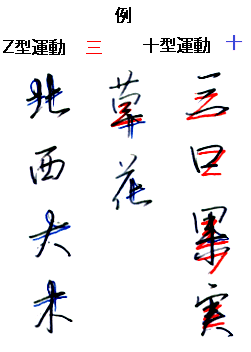 例
Z型運動 三 十型運動 十
北 草 三
西 花 日
大 果
木 実